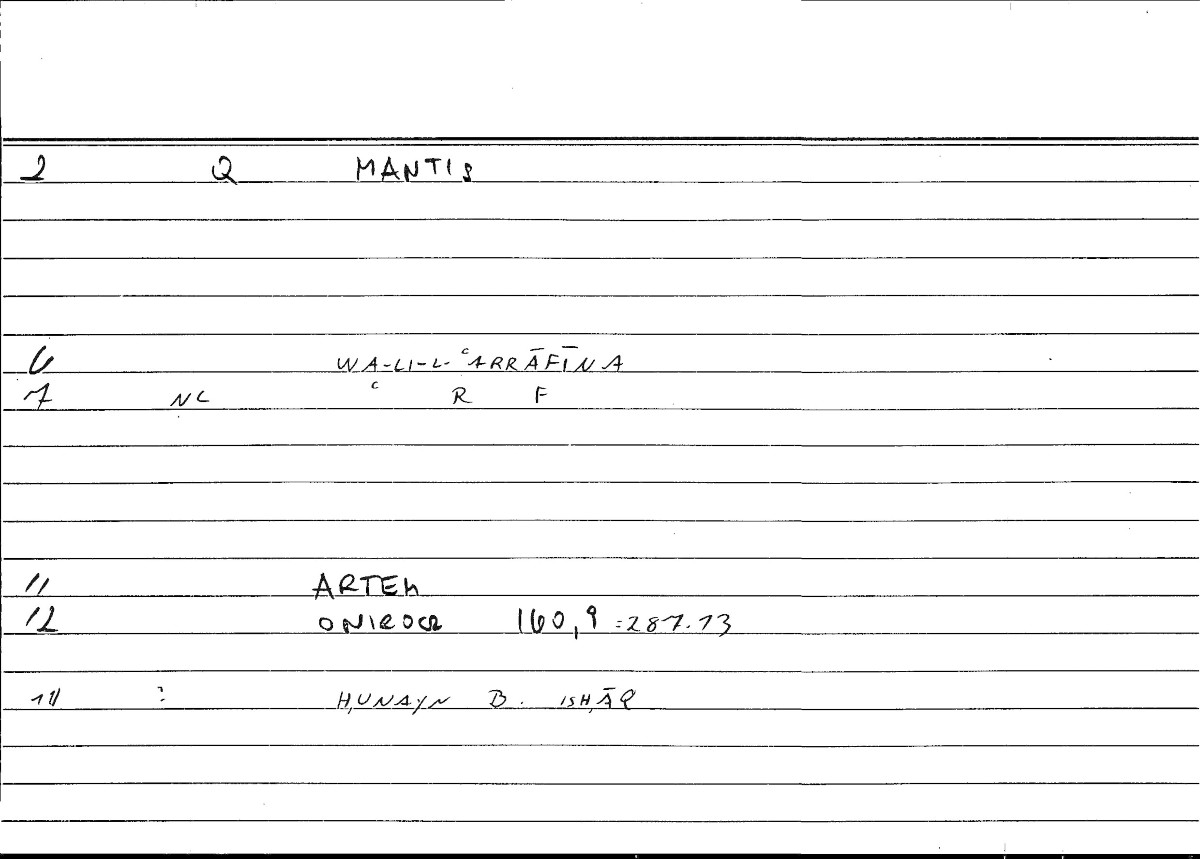 2 Q MANTIS
6 WA-LI-L-ᶜARRĀFĪNA
7 NC ᶜ R F
11 ARTEM
12 ONIROCR 160,9 =287.13
14 : ḤUNAYN B. ISḤĀQ